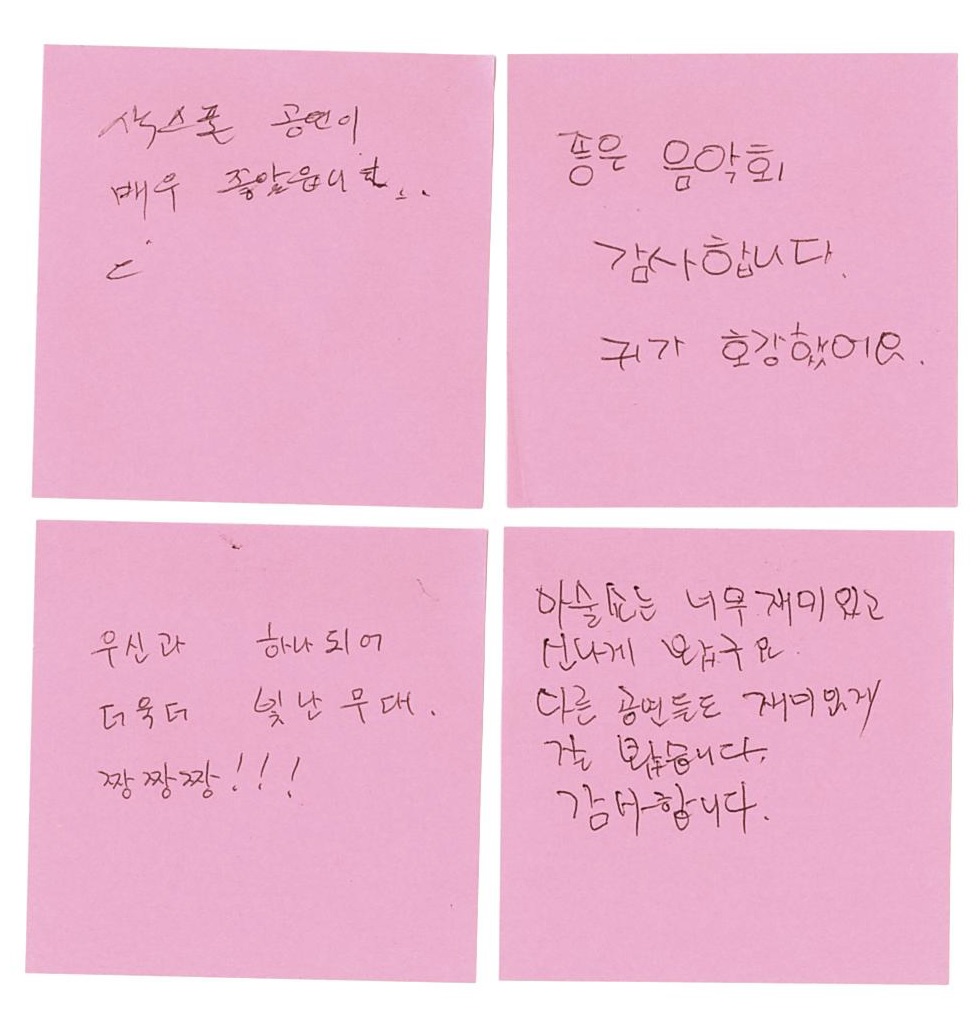 색스폰 공연이
배우 좋았읍니다...
좋은 음악회
감사합니다.
귀가 호강했어요.
우신과 하나되어
더욱더 빛난 무대.
짱짱짱!!!
마술쇼는 너무 재미있고
신나게 봤구요.
다른 공연들도 재미있게
잘 봤습니다.
감사합니다.